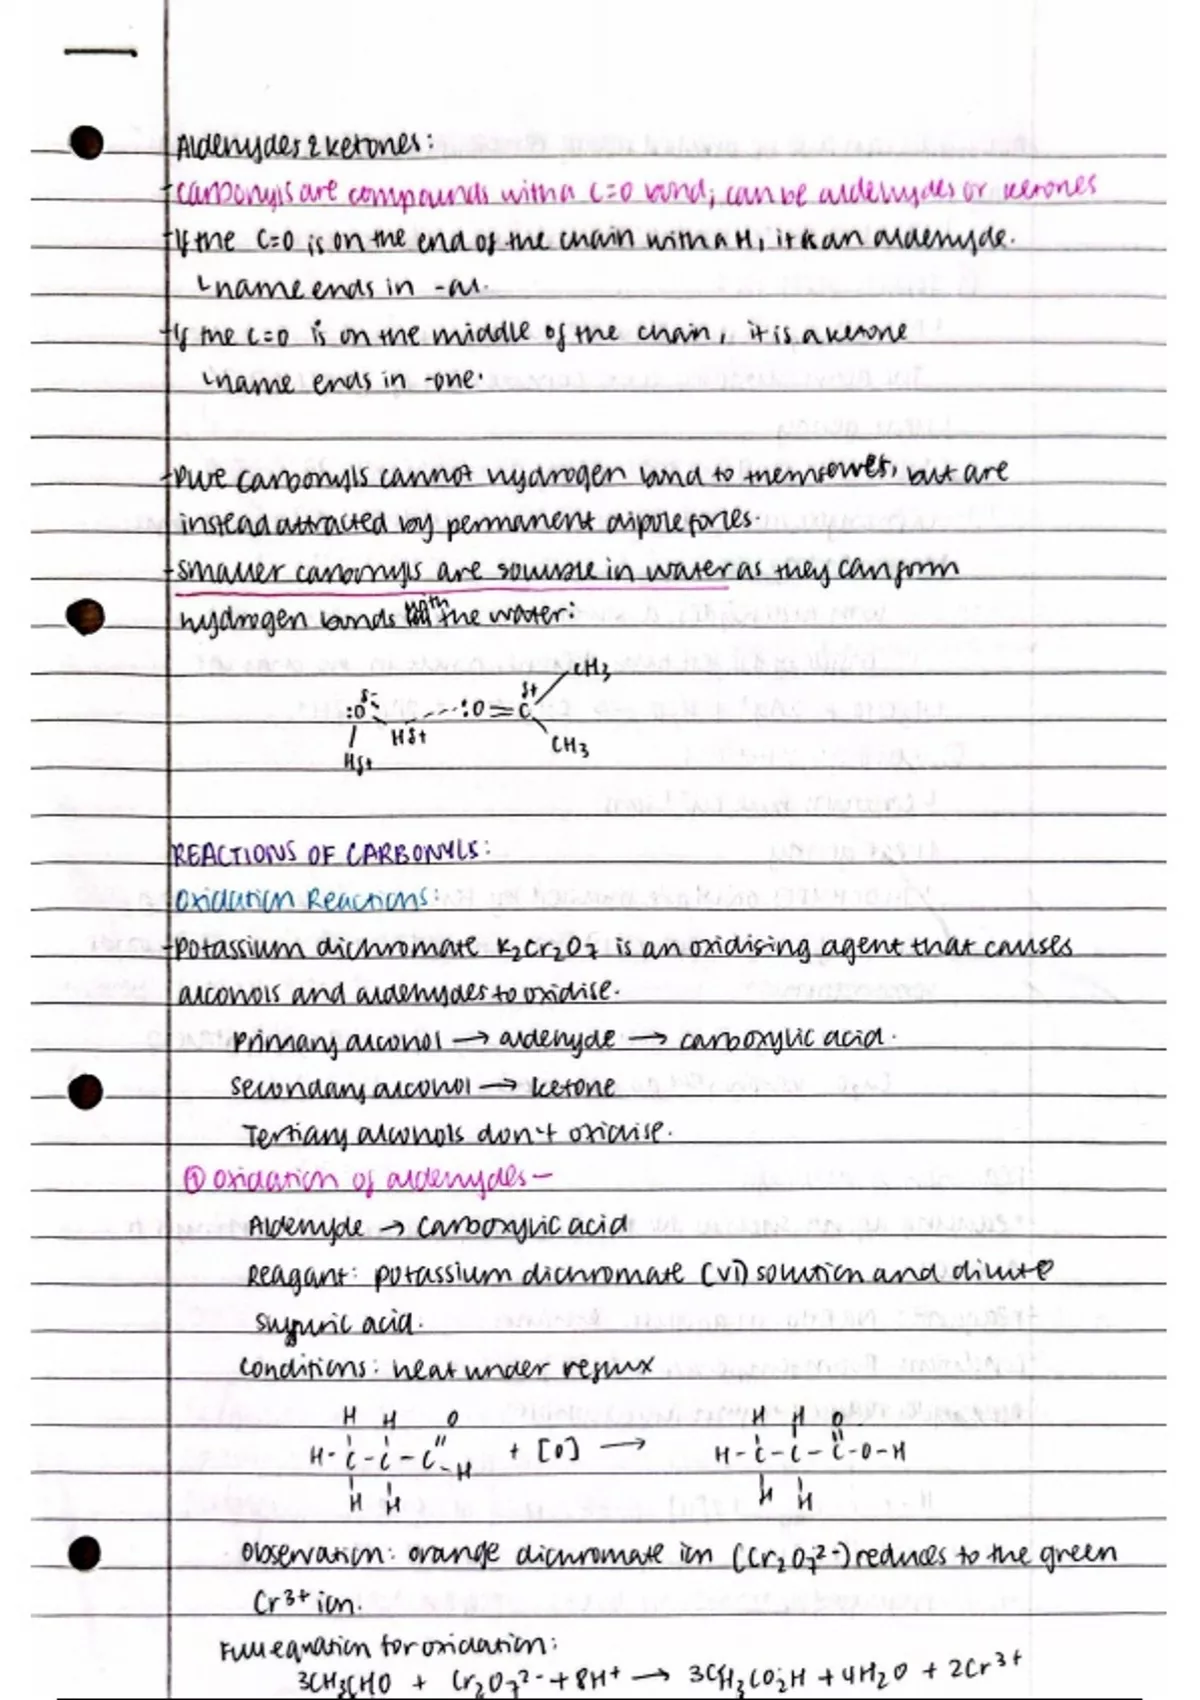 Aldehydes & ketones:
- carbonyls are compounds with a C=O bond; can be aldehydes or ketones
- If the C=O is on the end of the chain with a H, it is an aldehyde.
↳ name ends in -al.
- If the C=O is on the middle of the chain, it is a ketone
↳ name ends in -one.
- Pure carbonyls cannot hydrogen bond to themselves, but are
instead attracted by permanent dipole forces.
- Smaller carbonyls are soluble in water as they can form
hydrogen bonds with the water:
CH₃
δ- δ+
:O: :O=C
Hδ+ CH₃
Hδ+
REACTIONS OF CARBONYLS:
Oxidation Reactions:
- potassium dichromate K₂Cr₂O₇ is an oxidising agent that causes
alcohols and aldehydes to oxidise.
Primary alcohol → aldehyde → carboxylic acid.
Secondary alcohol → ketone
Tertiary alcohols don't oxidise.
① Oxidation of aldehydes -
Aldehyde → Carboxylic acid
Reagant: potassium dichromate (VI) solution and dilute
sulfuric acid.
Conditions: heat under reflux
H H O H H O
H-C-C-C-H + [O] → H-C-C-C-O-H
H H H H
Observation: orange dichromate ion (Cr₂O₇²⁻) reduces to the green
Cr³⁺ ion.
Full equation for oxidation:
3CH₃CHO + Cr₂O₇²⁻ + 8H⁺ → 3CH₃CO₂H + 4H₂O + 2Cr³⁺